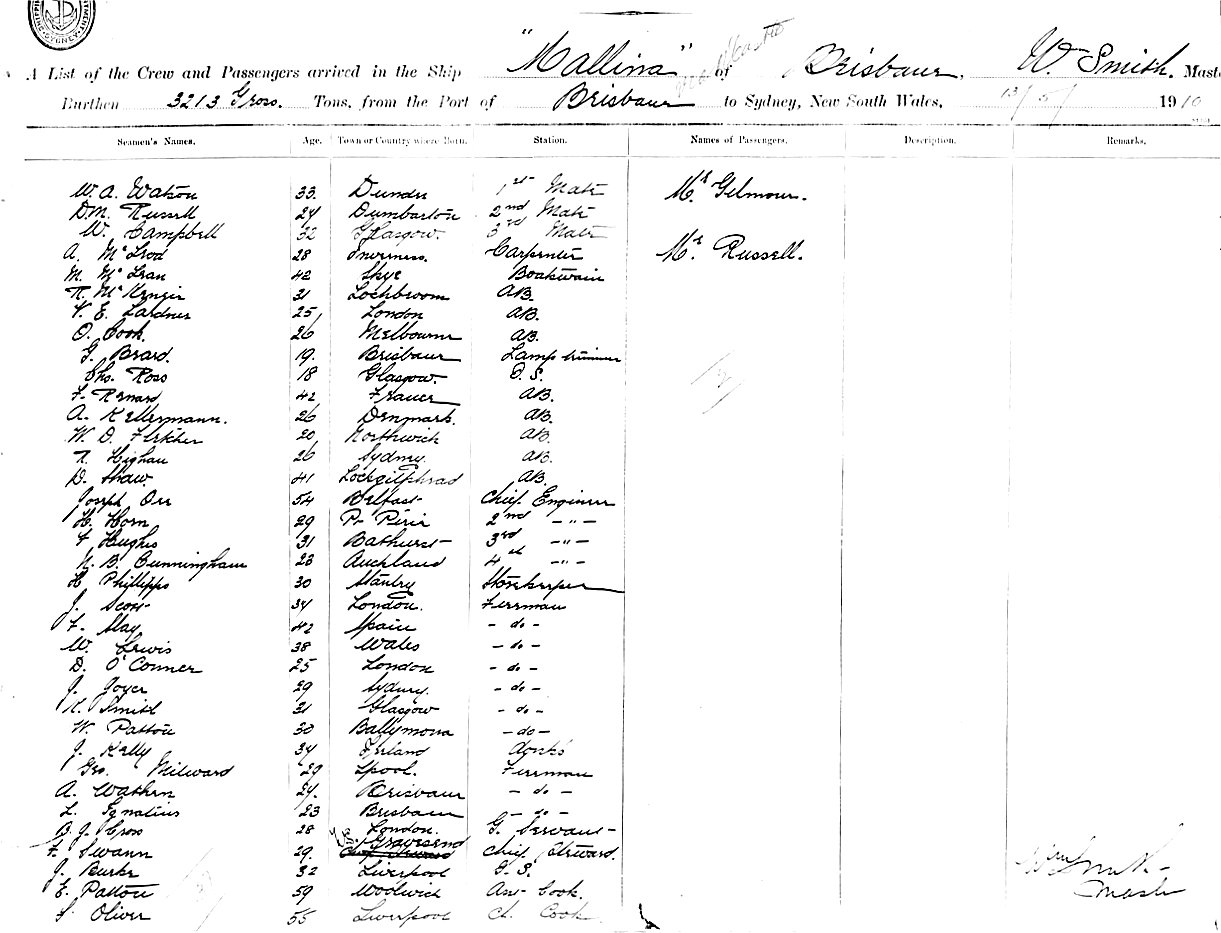 "Mallina" of Brisbane, W. Smith. Master
A List of the Crew and Passengers arrived in the Ship
Burthen 3213 Gross. Tons, from the Port of Brisbane to Sydney, New South Wales, 13/5/ 1910
Seamen's Names. Age. Town or Country where Born. Station. Names of Passengers. Description. Remarks.
W. A. Watson 33 Dundee 1st Mate Mrs Gilmour.
D.M. Russell 24 Dumbarton 2nd Mate
W. Campbell 32 Glasgow. 3rd Mate
A. McLeod 28 Inverness. Carpenter Mrs Russell.
M. McLean 42 Skye Boatswain
R. McKenzie 31 Lochbroom AB.
V. E. Lardner 25 London AB.
O. Cook. 26 Melbourne AB.
G. Beard. 19. Brisbane Lamp trimmer
Chs. Ross 18 Glasgow. O.S.
F. Renard 42 France AB.
A. Kellermann. 26 Denmark. AB.
W. D. Fletcher 20 Northwich AB.
R. Higham 26 Sydney. AB.
D. Shaw 41 Lochgilphead AB.
Joseph Orr 54 Belfast Chief Engineer
H. Horn 29 Pt Pirie 2nd - " -
F Hughes 31 Bathurst 3rd - " -
N. B. Cunningham 23 Auckland 4th - " -
H Phillipps 30 Stanley Storekeeper
J. Scott 34 London. Fireman
F. May 42 Spain - do -
W. Lewis 38 Wales - do -
D. O'Conner 25 London - do -
J. Joyce 29 Sydney. - do -
K. Smith 31 Glasgow - do -
W. Patton 30 Ballymona - do -
J. Kelly 34 Ireland Donks
Geo. Milward 29 Lpool. Fireman
A. Wathen 24. Brisbane - do -
L. Ignatius 23 Brisbane - do -
B. J. Cross 28 London. G. Servant
F. Swann 29. Gravesend Chief Steward.
J. Burke 32 Liverpool G. S.
E. Patton 59 Woolwich Asst Cook.
S. Oliver 55 Liverpool Ch. Cook
Wm Smith
Master